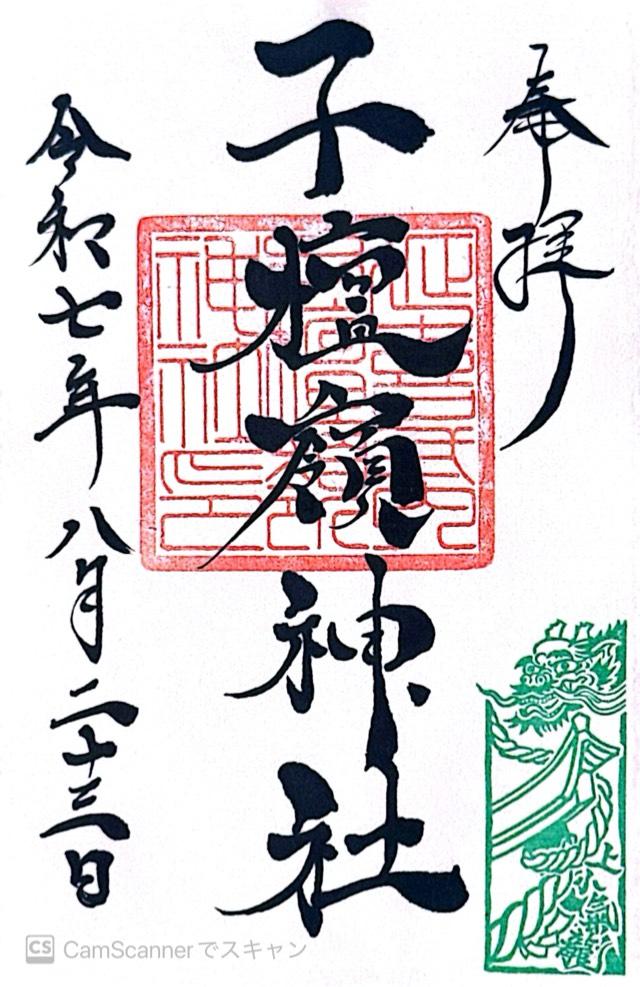 奉拝
子檀嶺神社
令和七年八月二十三日
CS CamScannerでスキャン